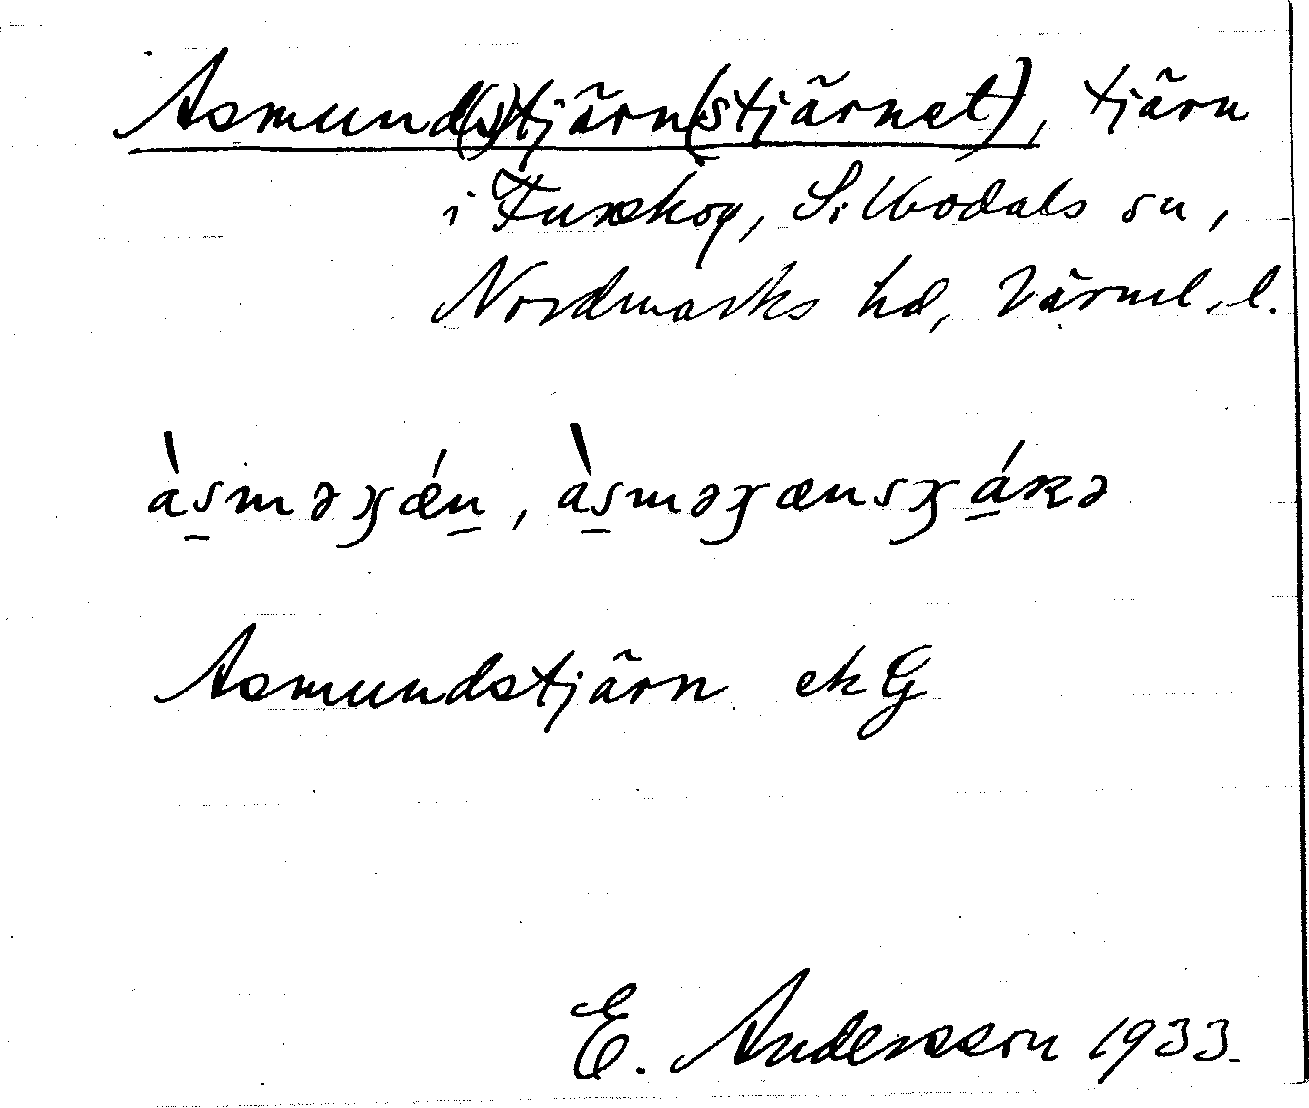 Asmund(s)tjärn(stjärnet), tjärn
i Furskog, Silbodals sn,
Nordmarks hd, Värml. l.
àsməʒǽn, àsməʒænsʒákə
Asmundstjärn ekG
E. Andersson 1933.